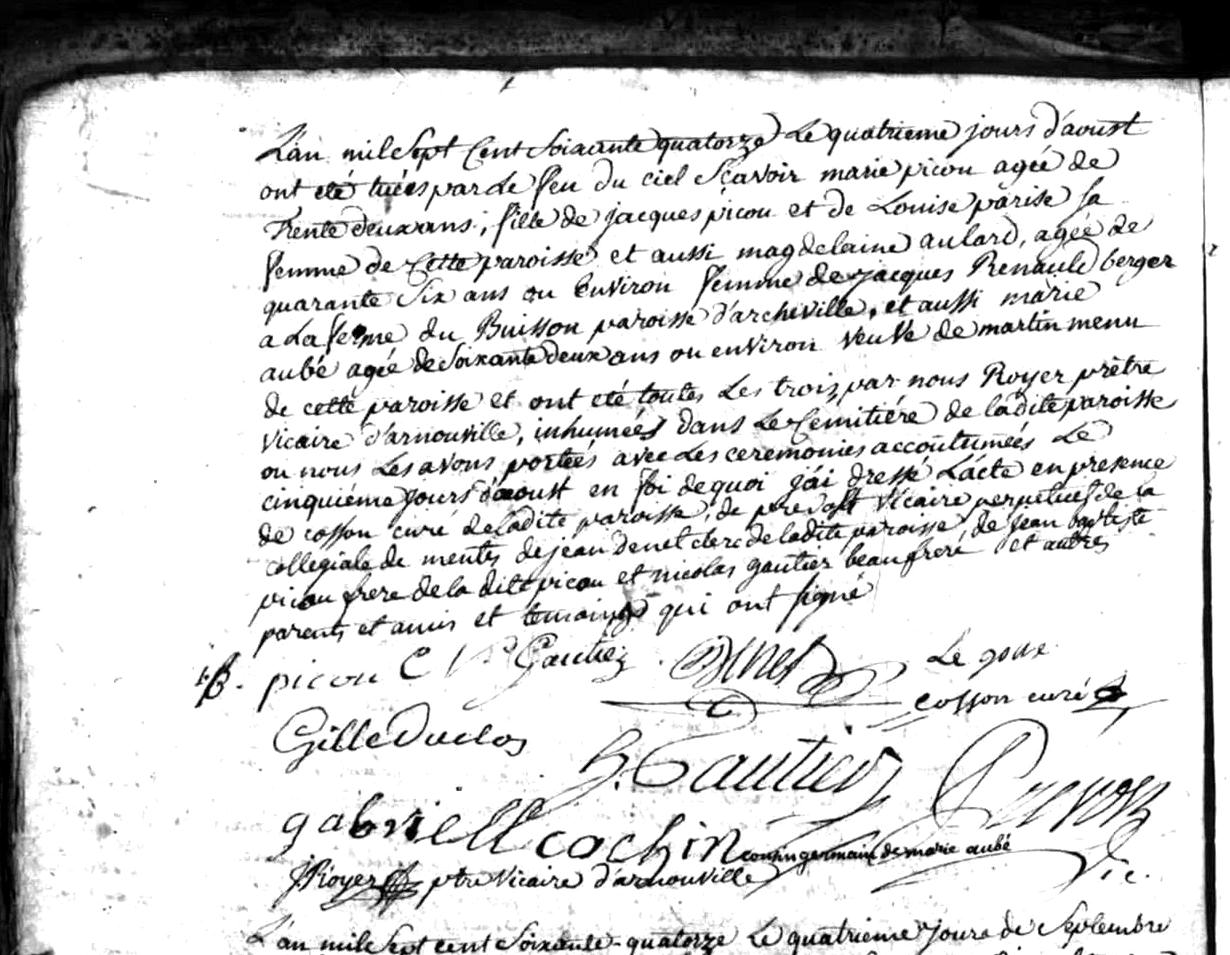 L'an mil Sept Cent Soixante quatorze Le quatrieme jours d'aoust
ont eté tuées par Le feu du ciel Scavoir marie picou agée de
Trente deux ans, fille de jacques picou et de Louise parise sa
femme de Cette paroisse et aussi magdelaine aulard, agée de
quarante Six ans ou Environ femme de jacques Renault berger
a La ferme du Buisson paroisse d'archeville, et aussi marie
aubé agée de Soixante deux ans ou environ veuve de martin menu
de cette paroisse et ont eté toutes Les trois par nous Royer prètre
vicaire d'arnouville, inhumées dans Le Cemitiére de ladite paroisse
ou nous Les avons portées avec Les ceremonies accoutumées Le
cinquiéme Jours d'aoust en foi de quoi j'ai dressé L'acte en presence
de cosson curé de ladite paroisse, de prevost vicaire perpetuel de la
collegiale de mentes de jean denet clerc de ladite paroisse, de jean baptiste
picou frere de la dite picou et nicolas gautier beau frere et autres
parents et amis et temoins qui ont signé
picou Gautiez Le
cosson curé
Gille Duclos
Gautier Prevost
gabriell cochin cousin germain de marie aubé
Vic.
JRoyer ptre Vicaire d'arnouville
L'an mil Sept cent Soixante-quatorze Le quatrieme Jours de Septembre